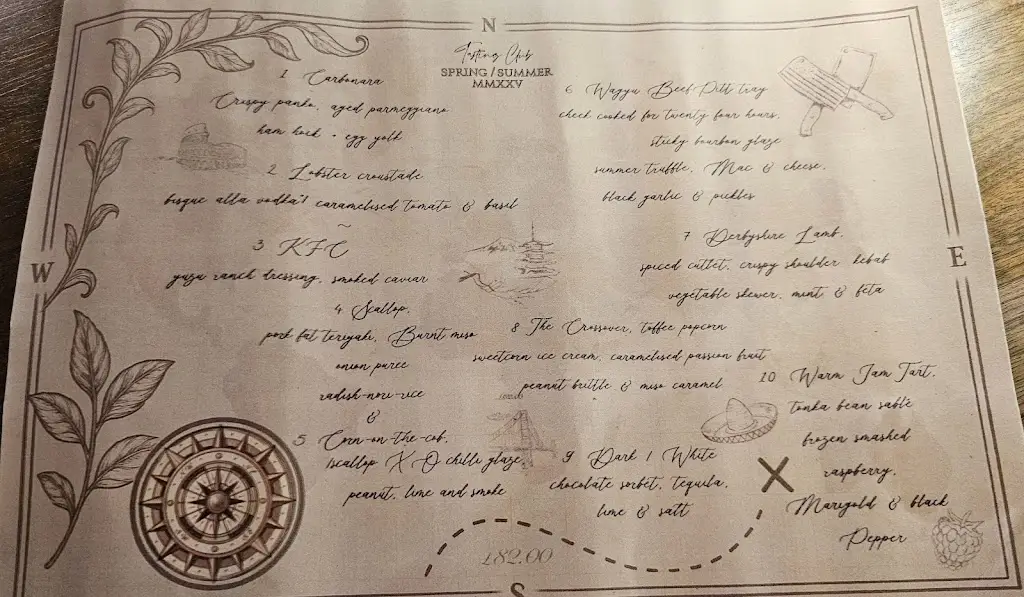 N
Tasting Club
SPRING / SUMMER
MMXXV
1 Carbonara
Crispy panko, aged parmeggiano,
ham hock + egg yolk
2 Lobster croustade
bisque alla vodka'1 caramelised tomato & basil
3 KFC
yuzu ranch dressing, smoked caviar
4 Scallop,
pork fat teriyaki, Burnt miso
onion puree
radish-nori-rice
&
5 Corn-on-the-cob,
scallop X-O chilli glaze,
peanut, lime and smoke
6 Wagyu Beef Pitt tray
cheek cooked for twenty four hours,
sticky bourbon glaze
summer truffle, Mac & cheese,
black garlic & pickles
7 Derbyshire Lamb,
spiced cutlet, crispy shoulder kebab
vegetable skewer, mint & feta
8 The Crossover, toffee popcorn
sweetcorn ice cream, caramelised passion fruit
peanut brittle & miso caramel
9 Dark / White
chocolate sorbet, tequila,
lime & salt
10 Warm Jam Tart,
tonka bean sablé
frozen smashed
raspberry,
Marigold & black
Pepper
W
E
X
£82.00
S